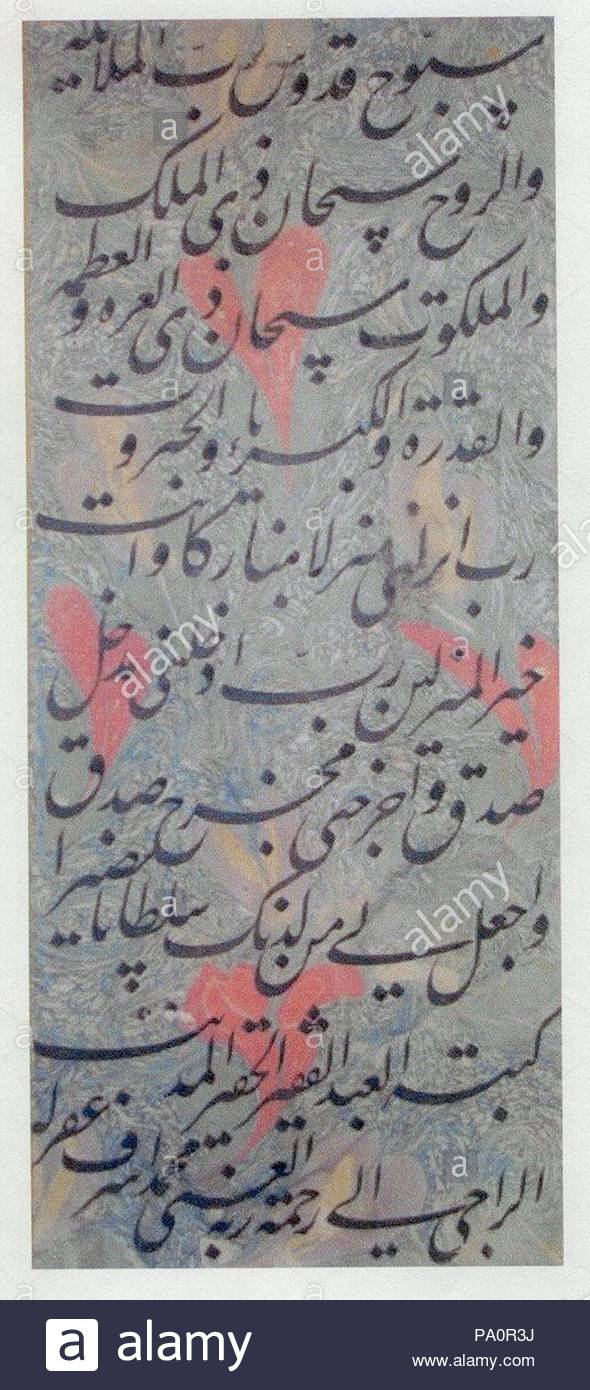 سبوح قدوس رب الملائکه
والروح سبحان ذی الملک
والملکوت سبحان ذی العزه و العظمه
والقدرة والکبریاء والجبروت
رب انزلنی منزلا مبارکا وانت
خیر المنزلین رب ادخلنی مدخل
صدق واخرجنی مخرج صدق
واجعل لی من لدنک سلطانا نصیرا
کتبه العبد الفقیر الحقیر المذنب
الراجی الی رحمة ربه الغنی محمد اشرف غفر له
alamy
PA0R3J
www.alamy.com